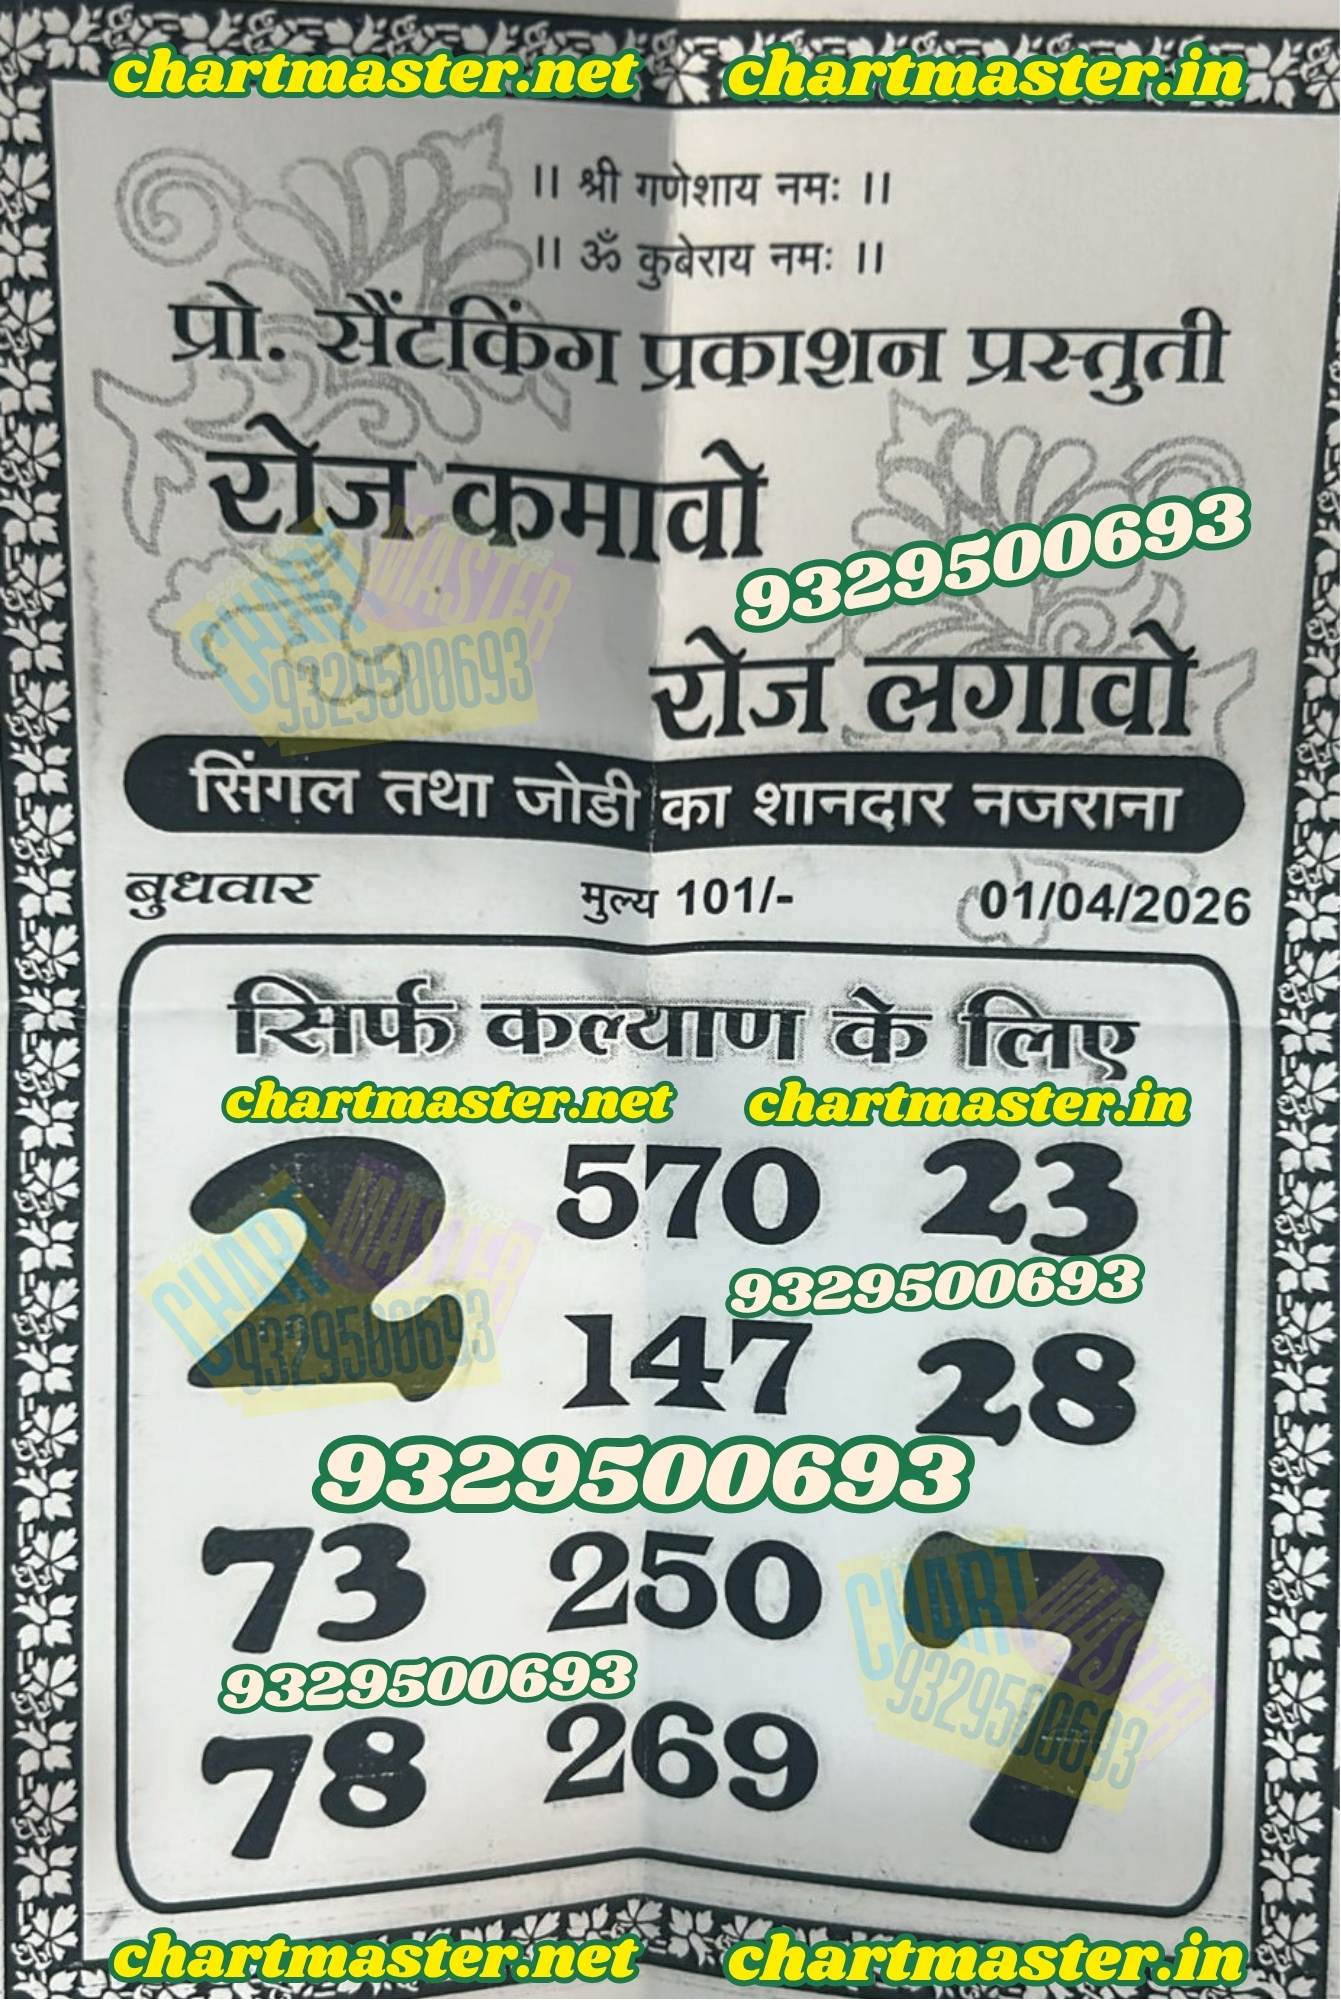 chartmaster.net chartmaster.in
।। श्री गणेशाय नमः ।।
।। ॐ कुबेराय नमः ।।
प्रो. सैंटकिंग प्रकाशन प्रस्तुती
रोज कमावो
9329500693
CHART MASTER
9329500693
रोज लगावो
सिंगल तथा जोडी का शानदार नजराना
बुधवार मुल्य 101/- 01/04/2026
सिर्फ कल्याण के लिए
chartmaster.net chartmaster.in
2 570 23
CHART MASTER
9329500693
9329500693
147 28
9329500693
73 250 7
CHART MASTER
9329500693
9329500693
78 269
chartmaster.net chartmaster.in